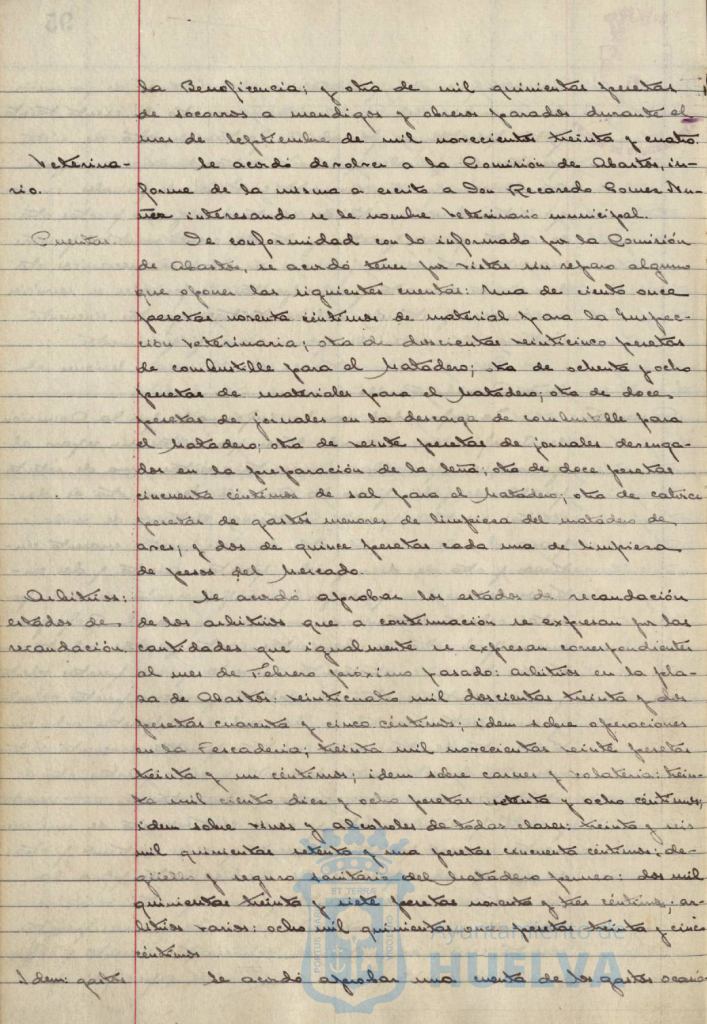 la Beneficencia; y otra de mil quinientas pesetas
de socorros a mendigos y obreros parados durante el
mes de Septiembre de mil novecientos treinta y cuatro.
Veterina-
rio.
Se acordó devolver a la Comisión de Abastos, in-
forme de la misma a escrito a Don Recaredo Gomez Nu-
ñez interesando se le nombre Veterinario municipal.
Cuentas.
De conformidad con lo informado por la Comisión
de Abastos, se acordó tener por vistas sin reparo alguno
que oponer las siguientes cuentas: Una de ciento once
pesetas noventa céntimos de material para la Inspec-
ción Veterinaria; otra de doscientas veinticinco pesetas
de combustible para el Matadero; otra de ochenta y ocho
pesetas de materiales para el Matadero; otra de doce
pesetas de jornales en la descarga de combustible para
el Matadero; otra de veinte pesetas de jornales devenga-
dos en la preparación de la leña; otra de doce pesetas
cincuenta céntimos de sal para el Matadero; otra de catorce
pesetas de gastos menores de limpieza del matadero de
aves; y dos de quince pesetas cada una de limpieza
de pesos del Mercado.
Arbitrios:
estados de
recaudación.
Se acordó aprobar los estados de recaudación
de los arbitrios que a continuación se expresan por las
cantidades que igualmente se expresan correspondientes
al mes de Febrero próximo pasado: arbitrios en la pla-
za de Abastos: veinticuatro mil doscientas treinta y dos
pesetas cuarenta y cinco céntimos; idem sobre operaciones
en la Pescaderia; treinta mil novecientas veinte pesetas
treinta y un céntimos; idem sobre carnes y volateria: trein-
ta mil ciento diez y ocho pesetas setenta y ocho céntimos;
idem sobre vinos y alcoholes de todas clases: treinta y seis
mil quinientas setenta y una pesetas cincuenta céntimos; de-
güello y seguro sanitario del Matadero público: dos mil
quinientas treinta y siete pesetas noventa y tres céntimos; ar-
bitrios varios: ocho mil quinientas once pesetas treinta y cinco
céntimos
Idem: gastos
Se acordó aprobar una cuenta de los gastos ocasio-
Ayuntamiento de
HUELVA